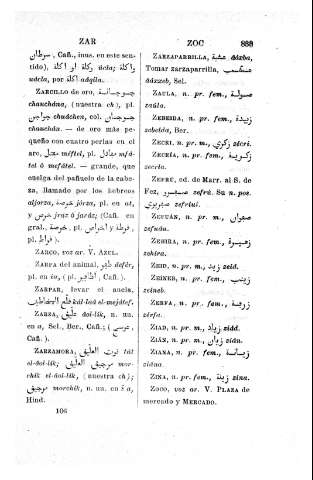 ZAR
ZOC
833
سرطان, Cañ., inus. en este sen-
tido), واكلة ó اكلة ucla; اكلة
uácla, por اكلة adqila.
ZARCILLO de oro, جوجانة
chauchána, (nuestra ch), pl.
جواجن chuáchen, col. جوجان
chuachán. — de oro más pe-
queño con cuatro perlas en el
aro, مفتل meftel, pl. مفاتل mfá-
tel ó mefátel. — grande, que
cuelga del pañuelo de la cabe-
za, llamado por los hebreos
aljorza, خرصة jórza, pl. en at,
y خرص jraz ó jaráz; (Cañ. en
gral., خرصة, pl. اخراص y قرطة,
pl. قراط).
ZARCO, voz ar. V. AZUL.
ZARPA del animal, ظفر defér,
pl. en ia, (pl. اظافير, Cañ.).
ZARPAR, levar el ancla,
قلع المخطاف kál-laá el-mejátef.
ZARZA, عليق áol-lik, n. un.
en a, Sel., Ber., Cañ.; (عوسج,
Cañ.).
ZARZAMORA, توت العليق tút
el-áol-lik; مرجيق العليق mor-
chik el-áol-lik, (nuestra ch);
مرجيق morchik, n. un. en ĭ a,
Hind.
106
ZARZAPARRILLA, عشبة áăxba,
Tomar zarzaparrilla,
áăxxeb, Sel.
ZAULA, n. pr. fem.,
zaúla.
ZEBEIDA, n. pr. fem., زبيدة
zebeida, Ber.
ZECRI, n. pr. m., زكري zecri.
ZECRÍA, n. pr. fem., زكرية
zecría.
ZEFRÚ, cd. de Marr. al S. de
Fez, صفرو zefrú. Su n. pos.
صفريوي zefriui.
ZEFUÁN, n. pr. m., صفوان
zefuán.
ZEHIRA, n. pr. fem., زهيرة
zehira.
ZEID, n. pr. m., زيد zeid.
ZEINEB, n. pr. fem., زينب
zeineb.
ZERFA, n. pr. fem., زرفة
zérfa.
ZIAD, n. pr. m., زياد zidd.
ZIÁN, n. pr. m., زيان zián.
ZIANA, n. pr. fem., زيانة
ziána.
ZINA, n. pr. fem., زينة zina.
ZOCO, voz ar. V. PLAZA de
mercado y MERCADO.